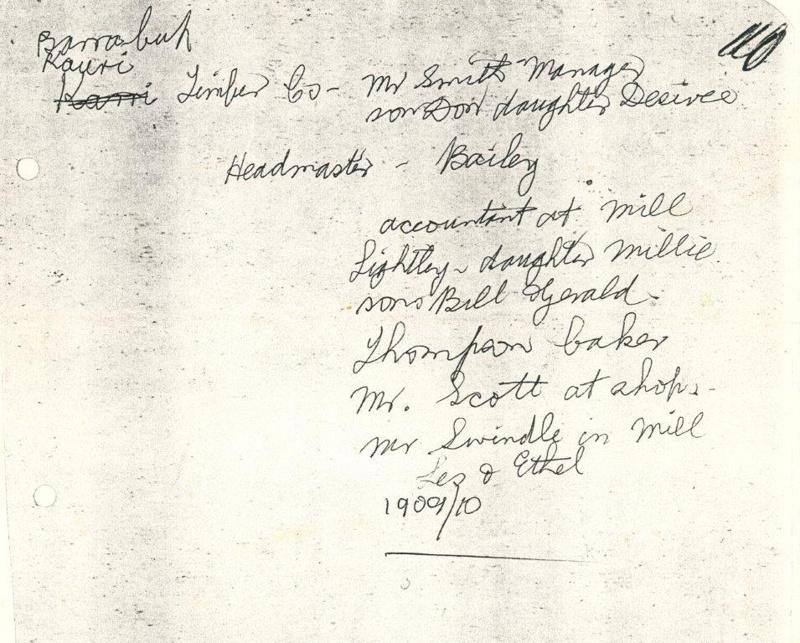 Barrabup
Kauri
Karri Timber Co - Mr Smith Manager
son Don daughter Desiree
Headmaster - Bailey
accountant at mill
Lightley - daughter Millie
sons Bill & Gerald
Thompson baker
Mr. Scott at shop.
Mr Swindle in Mill
Les & Ethel
1909/10